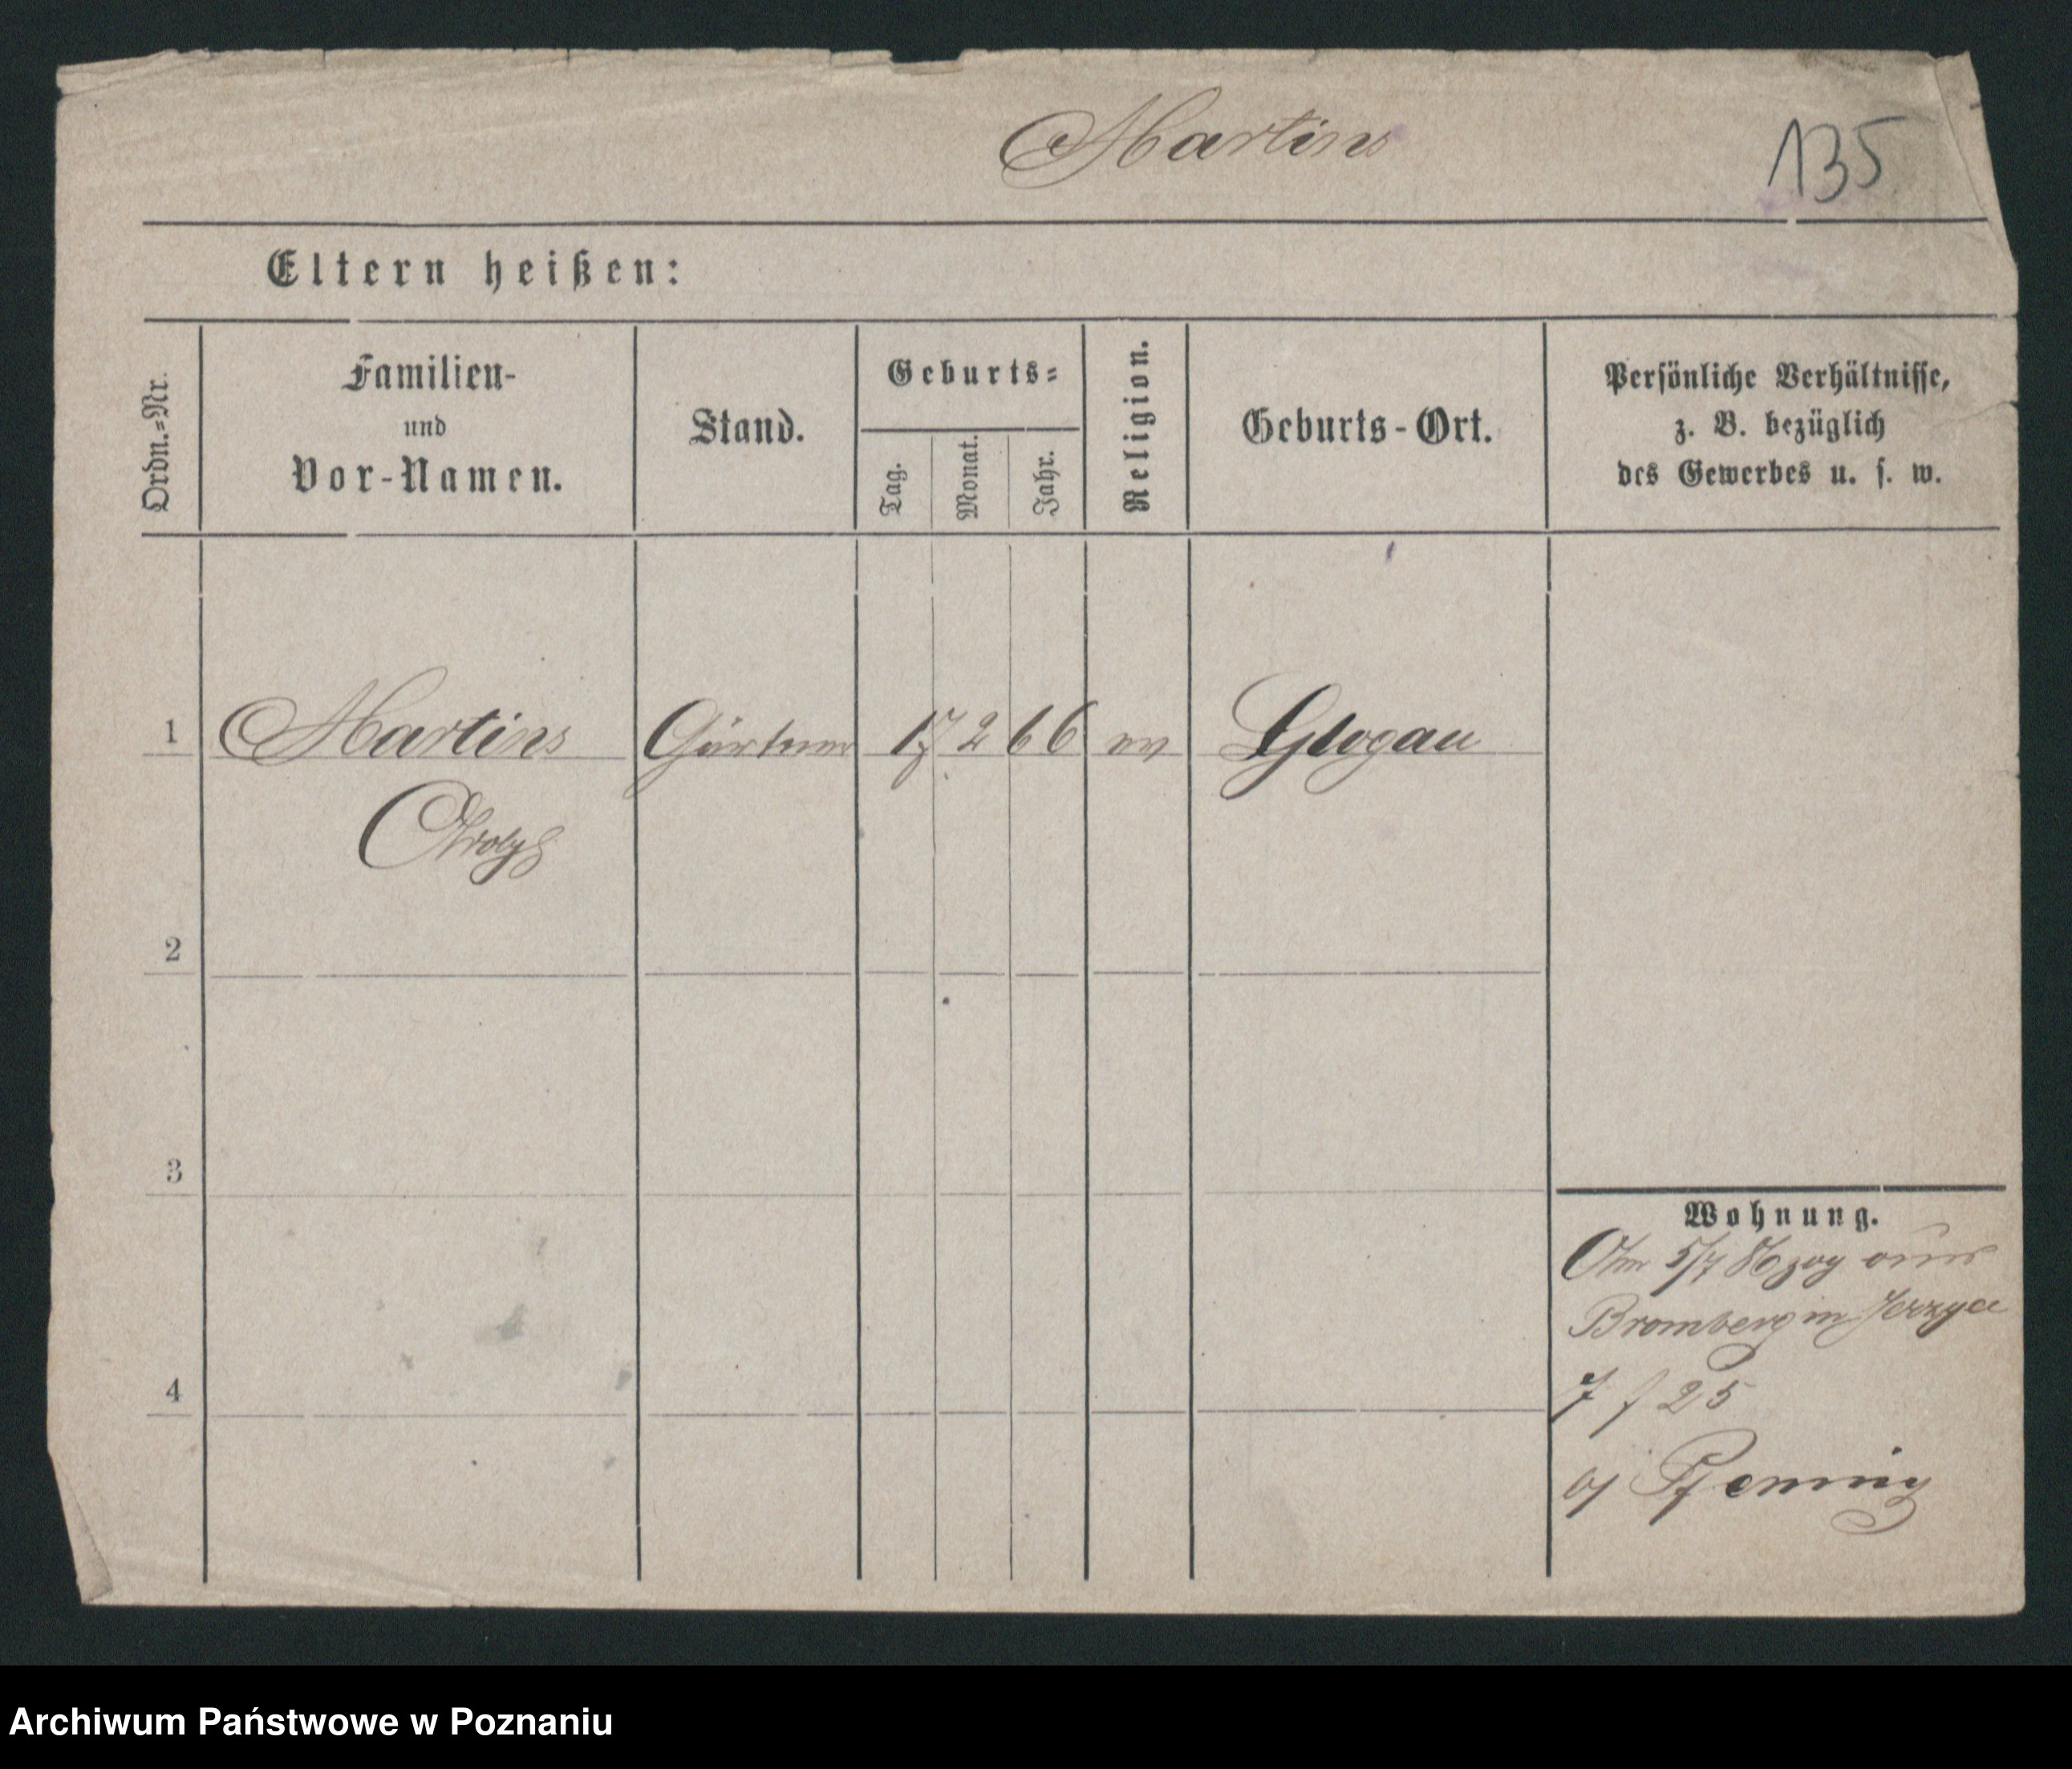 Martins
135
Eltern heißen:
Ordn.=Nr.
Familien-
und
Vor-Namen.
Stand.
Geburts=
Tag.
Monat.
Jahr.
Religion.
Geburts-Ort.
Persönliche Verhältnisse,
z. B. bezüglich
des Gewerbes u. s. w.
1 Martins Gärtner 17 2 66 ev Glogau
Adolf
2
3
4
Wohnung.
Am 5/7 86 zog aus
Bromberg in Jerzyce
25
Pfennig